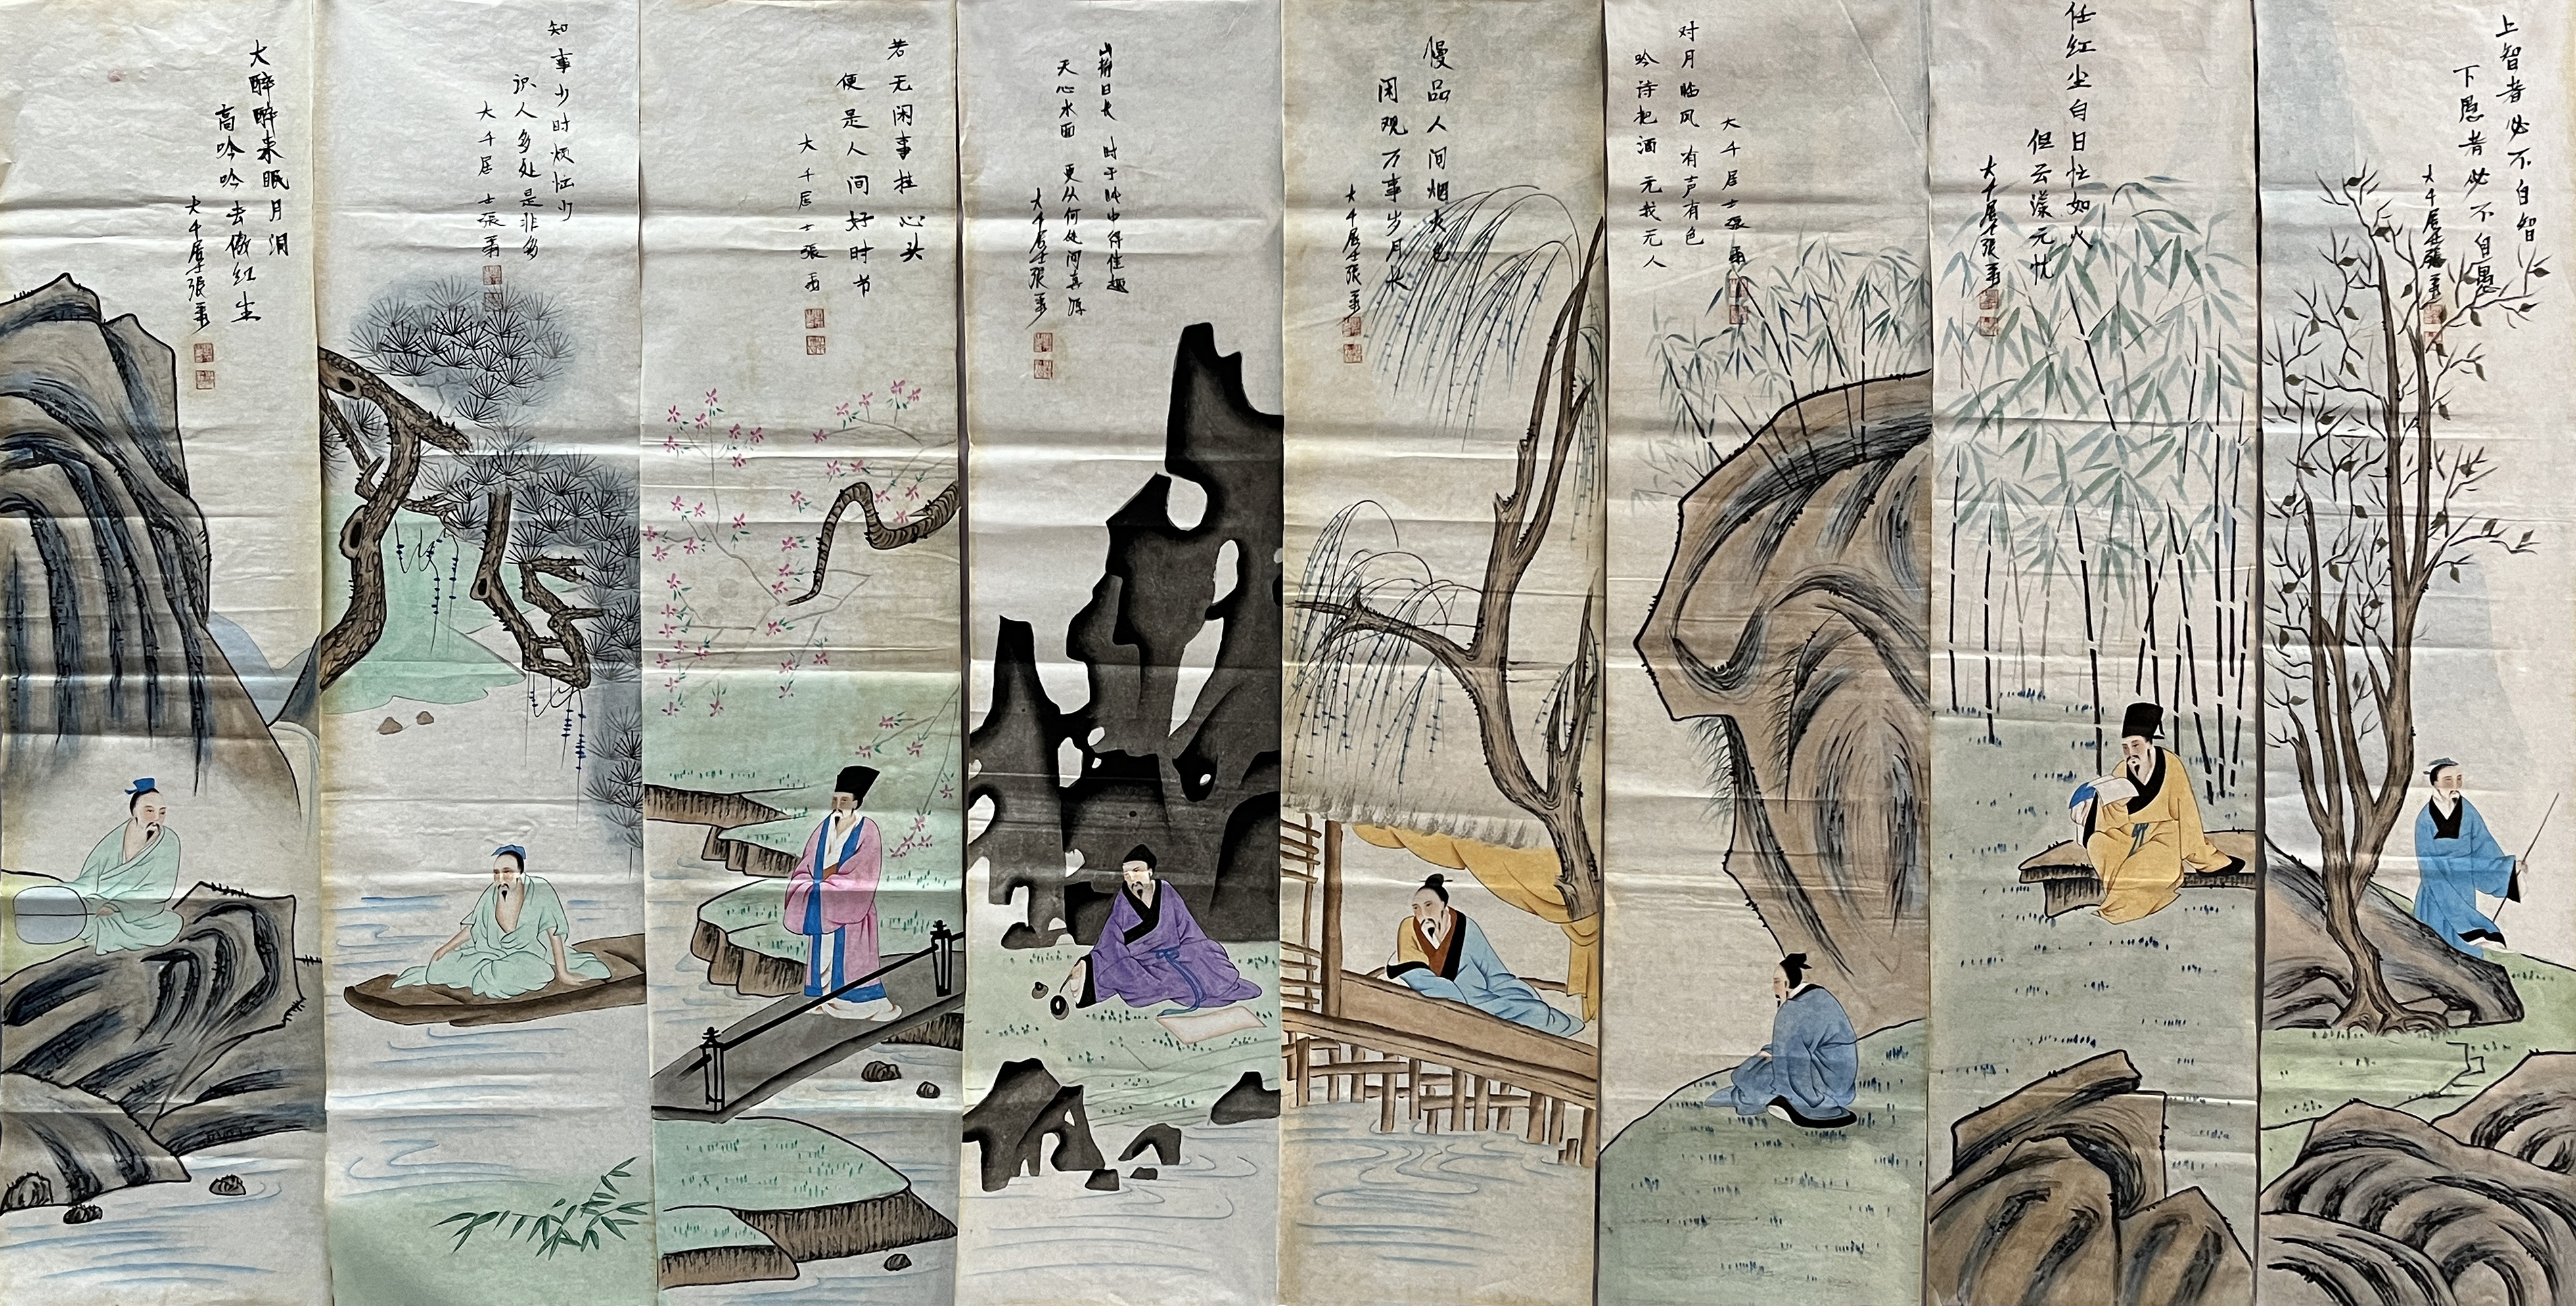 上智者必不自智
下愚者必不自愚
大千居士張爰
任红尘自日忙如火
但云漾元忧
大千居士張爰
对月临风 有声有色
吟诗把酒 元我元人
大千居士張爰
慢品人间烟火色
闲观万事岁月长
大千居士張爰
山静日长 时于此中得佳趣
天心水面 更从何处问真源
大千居士張爰
若无闲事挂心头
便是人间好时节
大千居士張爰
知事少时烦恼少
识人多处是非多
大千居士張爰
大醉醉来眠月洞
高吟吟去傲红尘
大千居士張爰